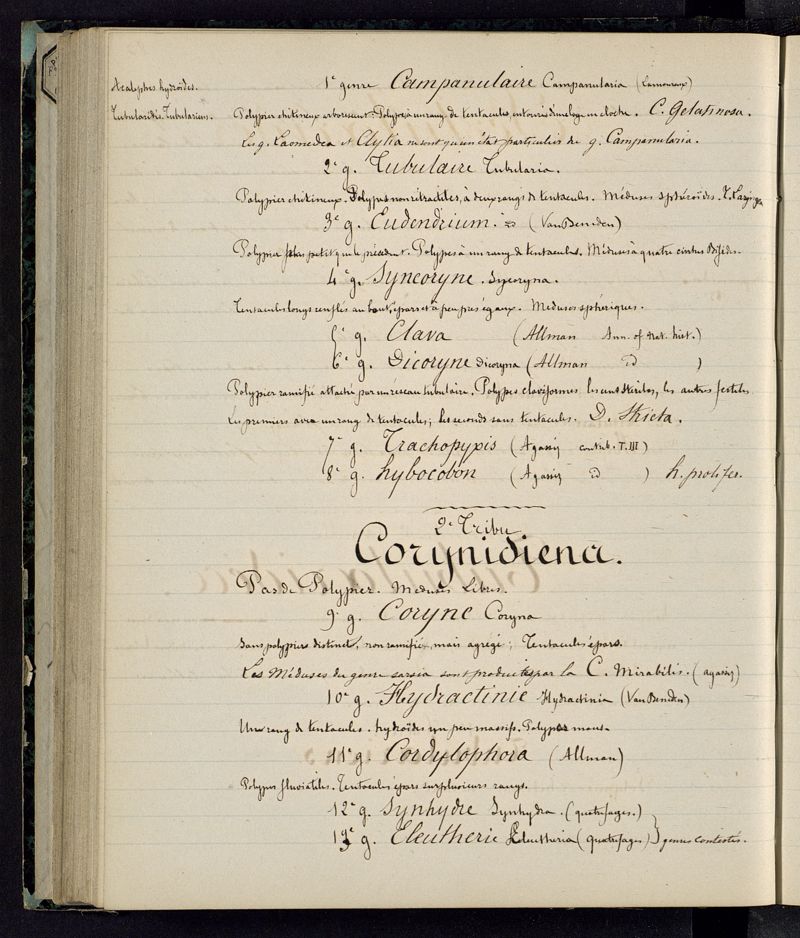 Acalèphes hydroïdes.
Tubularidés. Tubulariens.
1er genre Campanulaire Campanularia (Lamouroux)
Polypier chitineux arborescent. Polypes à un rang de tentacules, entourés d'une loge en cloche. C. Gelatinosa.
Les g. Laomedea et Clytia ne sont qu'un état particulier du g. Campanularia.
2e g. Tubulaire Tubularia.
Polypier chitineux. Polypes non rétractiles, à deux rangs de tentacules. Méduses sphéroïdes.
3e g. Eudendrium. id (Van Beneden)
Polypier plus petit que le précédent. Polypes à un rang de tentacules. Méduses à quatre cirrhes Bifides.
4e g. Syncoryne. Syncoryna.
Tentacules longs renflés au bout, épars et à peu près égaux. Méduses sphériques.
5e g. Clava (Allman Ann. of. nat. hist.)
6e g. Dicoryne dicoryna (Allman id )
Polypier ramifié attaché par un réseau tubulaire. Polypes claviformes les uns stériles, les autres fertiles.
Les premiers avec un rang de tentacules; les seconds sans tentacules. D. Stricta.
7e g. Trachopypis (Agassiz contrib. T. III)
8e g. hybocobon (Agassiz id ) h. prolifer.
2e Tribu
Corynidiena.
Pas de Polypier. Méduses Libres.
9e g. Coryne Coryna
Sans polypiers distinct, non ramifié, mais agrégé; Tentacules épars.
Les Méduses du genre sarsia sont produites par la C. Mirabilis. (agassiz)
10e g. Hydractinie Hydractinia (Van Beneden)
Un rang de tentacules. hydroïdes un peu massifs. Polypes mous.
11e g. Cordylophora (Allman)
Polypes fluviatiles. Tentacules épars sur plusieurs rangs.
12e g. Synhydre Synhydra. (quatrefages.)
13e g. Eleutherie Eleutheria (Quatrefages) } genres contestés.